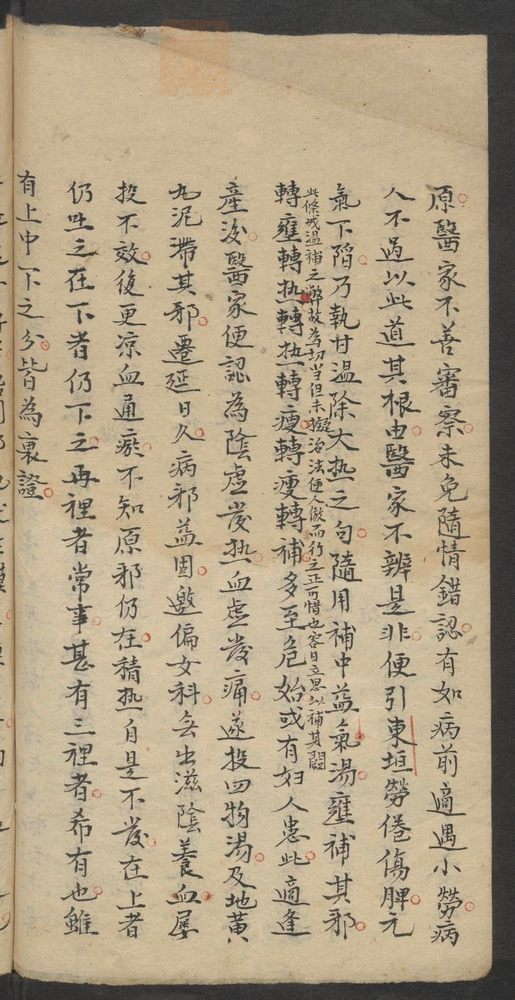 原醫家不善審察未免隨情錯認有如病前適遇小勞病
人不過以此道其根由醫家不辨是非便引東垣勞倦傷脾元
氣下陷乃執甘溫除大热之句隨用補中益氣湯壅補其邪
此條戒溫補之弊故為切当但未擬治法使人倣而行之正可惜也容日立思以補其闕
轉壅轉热轉热轉瘦轉瘦轉補多至危始或有妇人患此適逢
產後醫家便認為陰虛發热血虛發痛遂投四物湯及地黃
丸泥滯其邪遷延日久病邪益固邀偏女科無出滋陰養血屡
投不效復更凉血通瘀不知原邪仍在積热自是不發在上者
仍吐之在下者仍下之再裡者常事甚有三裡者希有也雖
有上中下之分皆為裏證